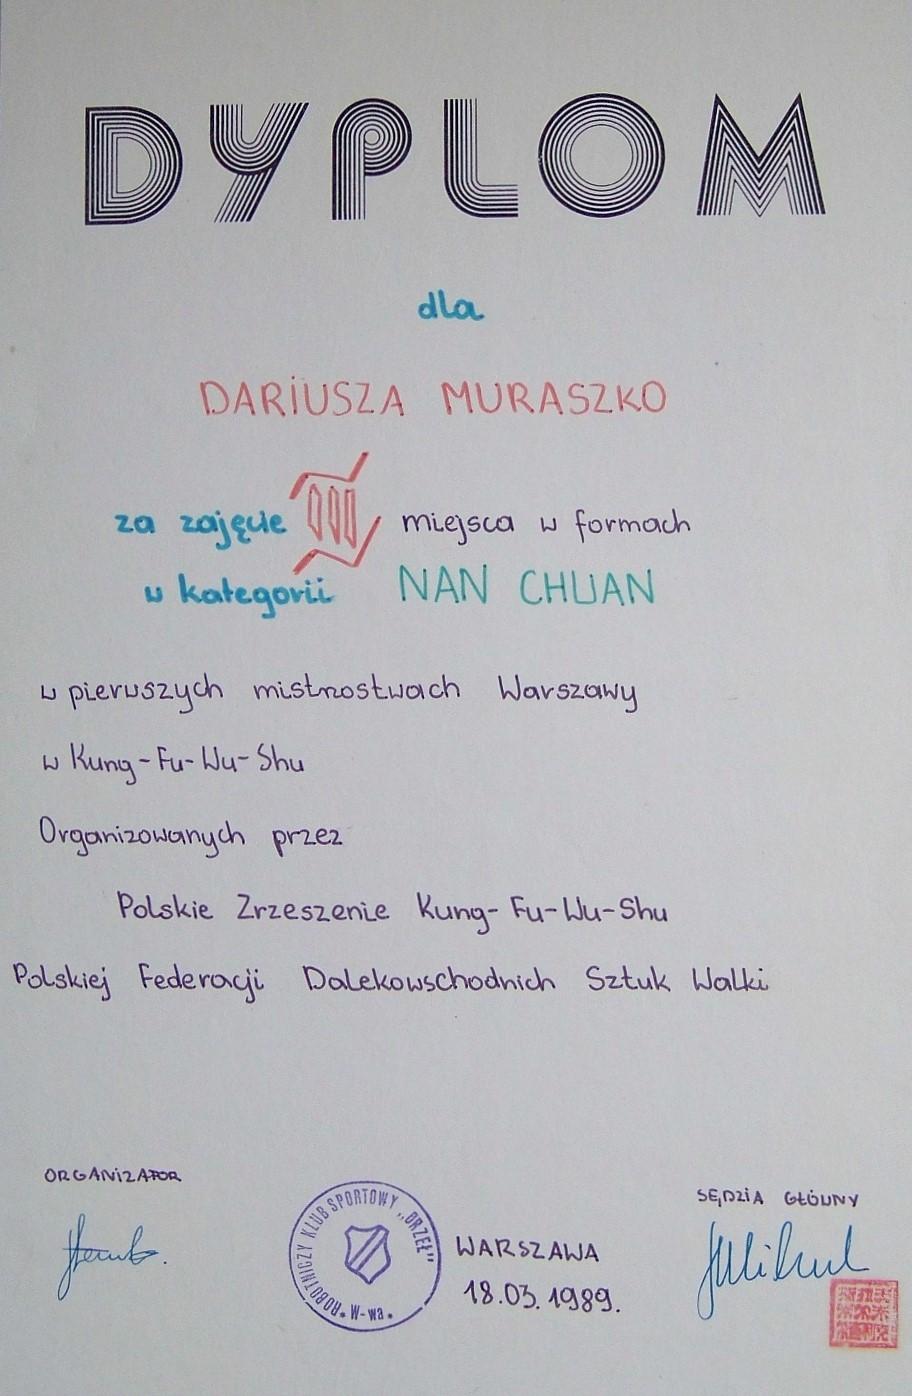 DYPLOM
dla
DARIUSZA MURASZKO
za zajęcie III miejsca w formach
w kategorii NAN CHUAN
w pierwszych mistrzostwach Warszawy
w Kung-Fu-Wu-Shu
Organizowanych przez
Polskie Zrzeszenie Kung-Fu-Wu-Shu
Polskiej Federacji Dalekowschodnich Sztuk Walki
ORGANIZATOR
SĘDZIA GŁÓWNY
ROBOTNICZY KLUB SPORTOWY „ORZEŁ"
W-wa
WARSZAWA
18.03.1989.